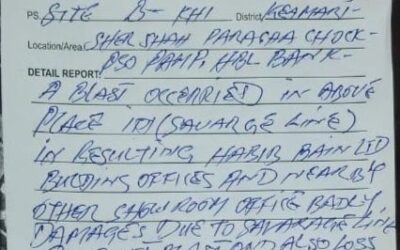 PS. SITE B - KHI District KEAMARI-
Location/Area SHERSHAH PARACHA CHOCK-
PSO PAMP, HBL BANK-
DETAIL REPORT:
A BLAST OCCERIED) IN ABOVE
PLACE IN (SAVARGE LINE)
IN RESULTING HABIB BAIN LTD
BUILDING OFFICES AND NEARBY
OTHER SHOWROOM OFFICE BADLY
DAMAGES DUE TO SAVARAGE LINE
BLAST AND ALSO LOSS